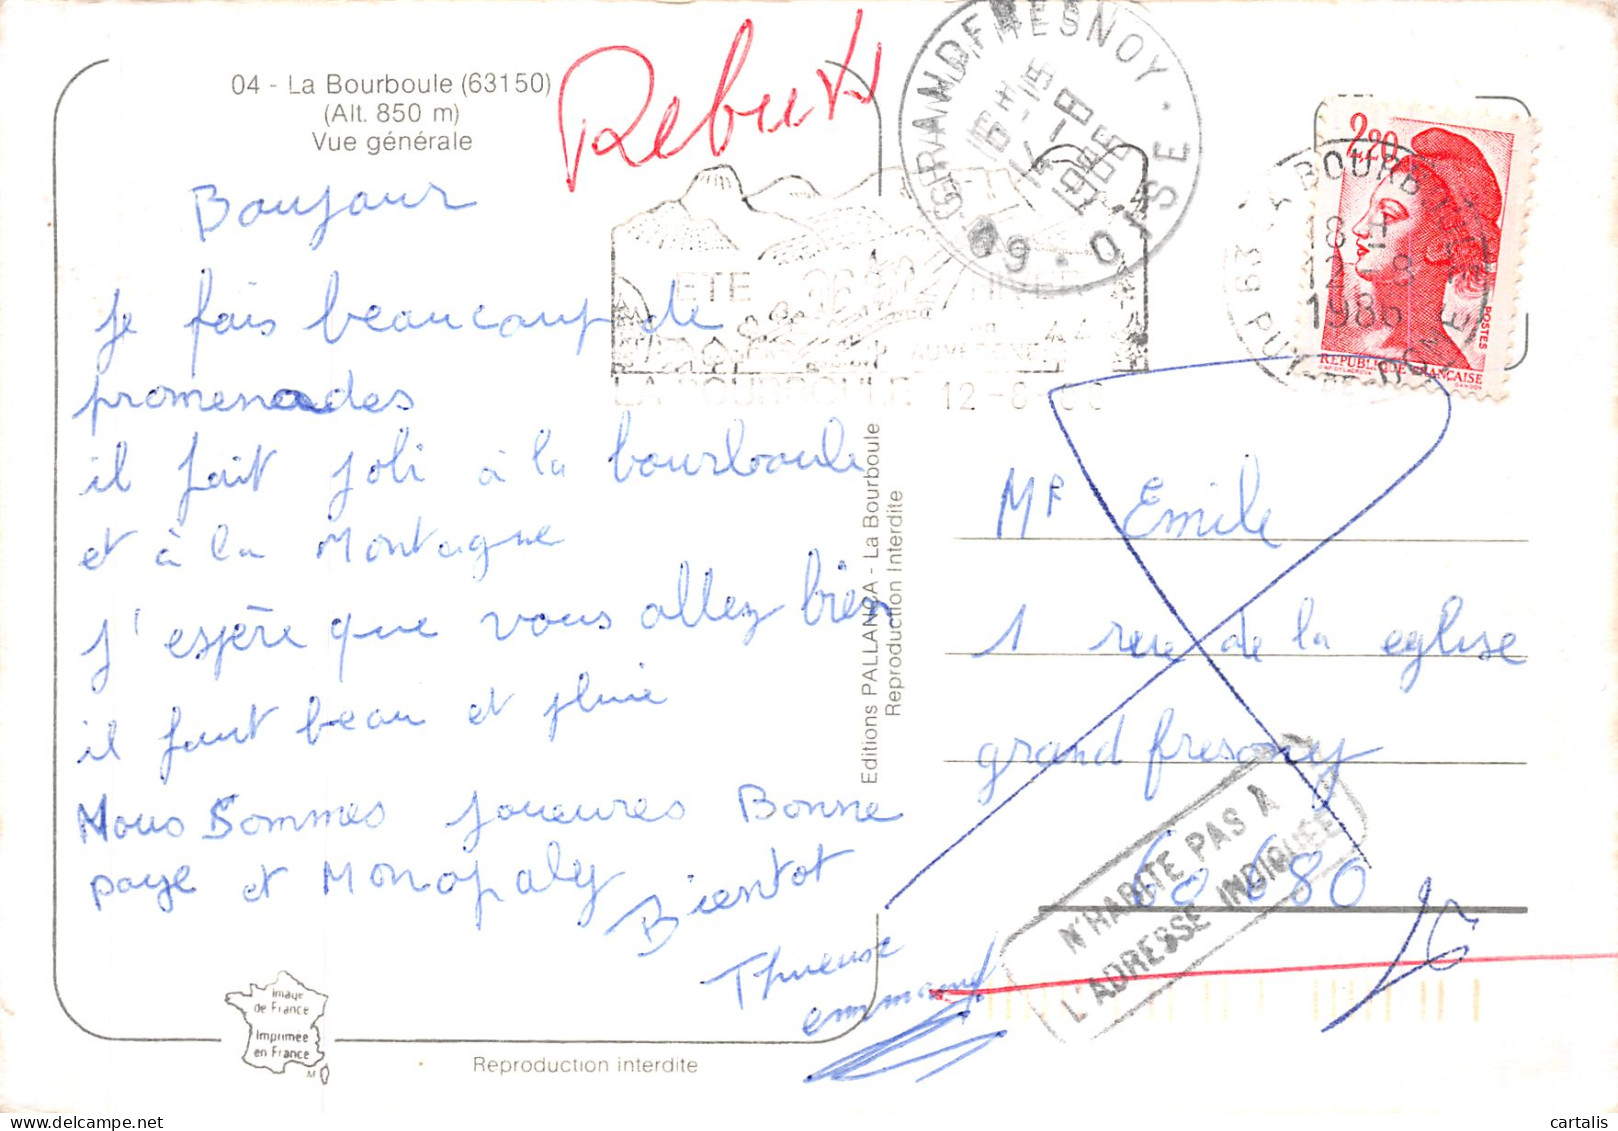 04 - La Bourboule (63150)
(Alt. 850 m)
Vue générale
Rebut
GRANDFRESNOY · OISE · 60
16 H 15
1986
ETE HIVER
AUVERGNE
LA BOURBOULE 12-8-86
63 LA BOURBOULE PUY-DE-DOME
18 H
12-8
1986
2,20
POSTES
REPUBLIQUE FRANÇAISE
Boujour
Je fais beaucoup de
promenades
il fait joli à la bourboule
et à la Montagne
J'espère que vous allez bien
il faut beau et pluie
Nous Sommes joueures Bonne
paye et Monopaly
Bientot
emmanuel
Editions PALLANCA - La Bourboule
Reproduction Interdite
Mr Emile
1 rue de la eglise
grand fresnoy
60680
N'HABITE PAS À
L'ADRESSE INDIQUÉE
Image
de France
Imprimée
en France
M
Reproduction interdite
cartalis